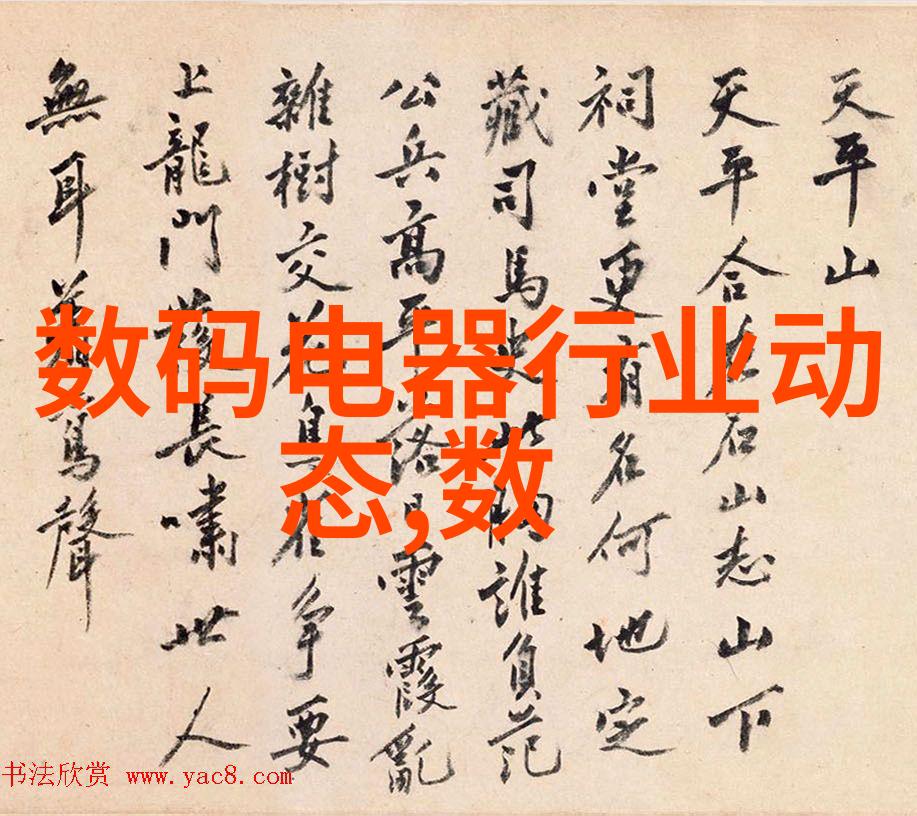 天平山
天平合石山志山下
祠堂更有名何地定
藏司馬史誰負范
公兵高平落日雲霞亂
雜樹交花鳥雀爭要
上龍門發長嘯世人
無耳聲
数码电器行业动
态,数
书法欣赏 www.yac8.com